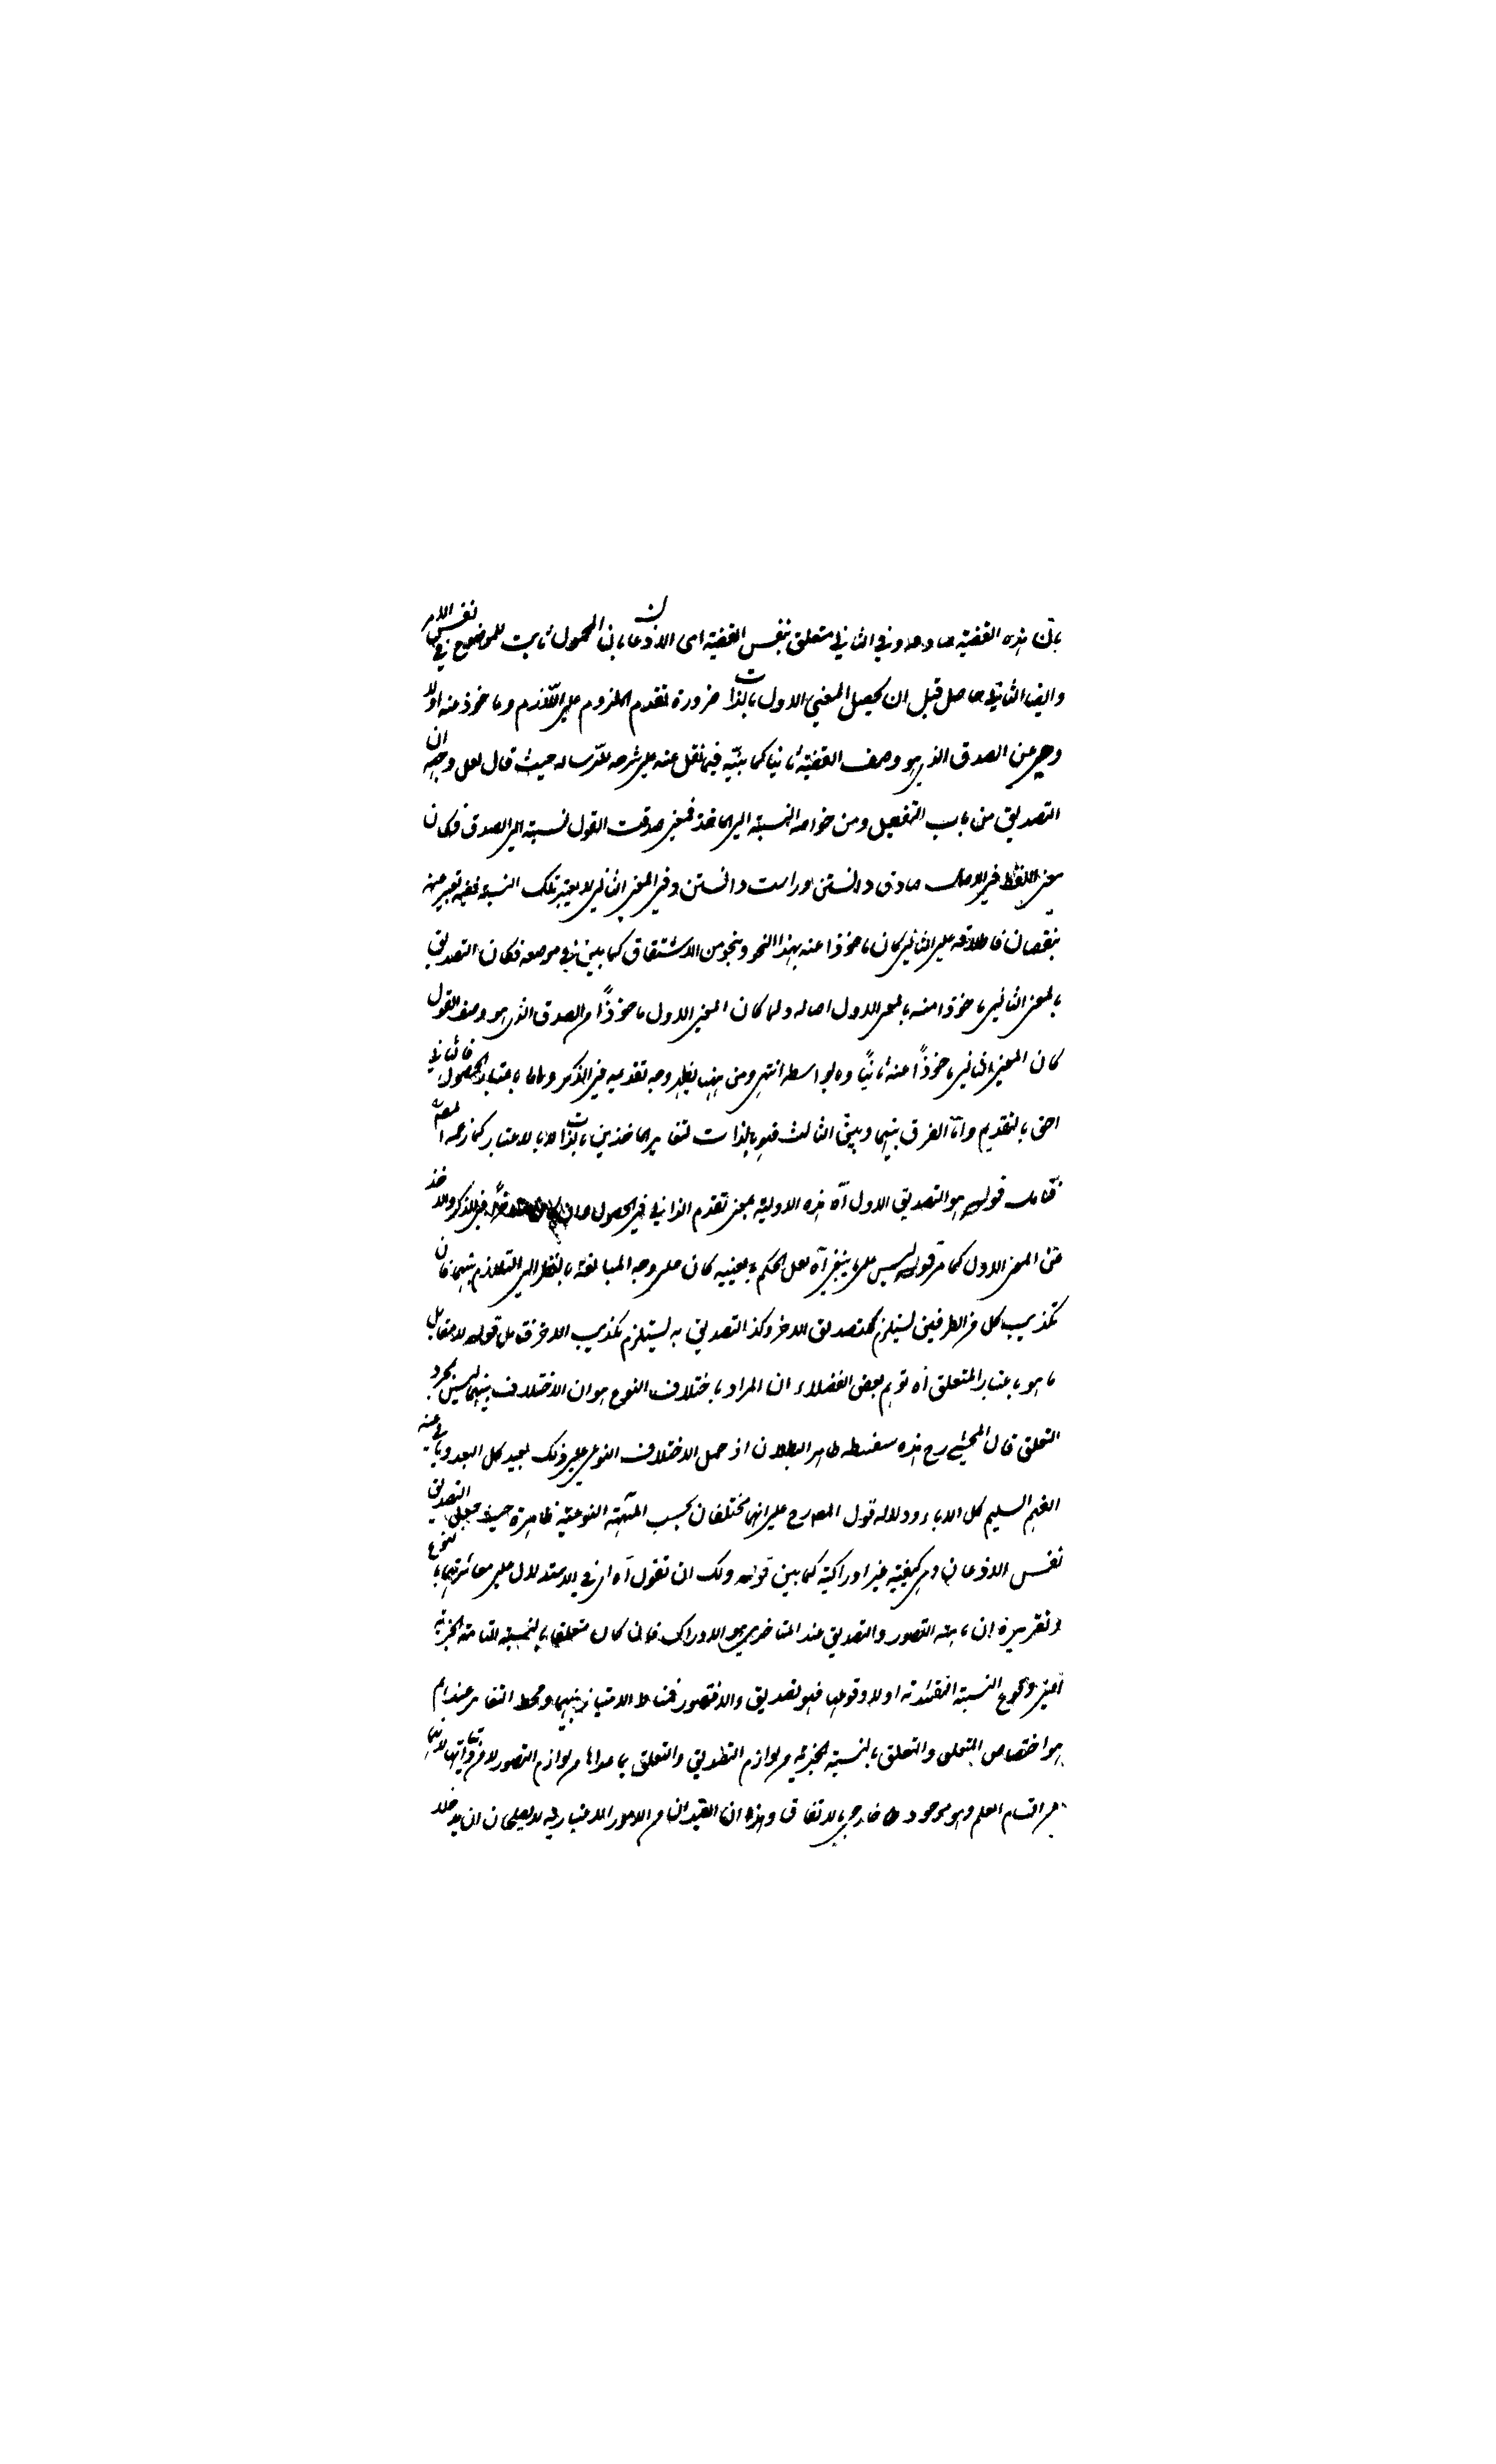 بان هذه القضية صادقة وفي الثاني متعلق بنفس القضية اى الاذعان بان المحمول ثابت للموضوع في نفس الامر
وايضا الثاني حاصل قبل ان يحصل المعنى الاول بالذات ضرورة تقدم الملزوم على اللازم وماخوذ منه اولا
وعن الصدق الذي هو وصف القضية ثانيا كما بينه فيما نقل عنه على شرحه للرسالة حيث قال لعل وجهه ان
التصديق من باب التفعيل ومن خواصه النسبة الى الماخذ فمعنى صدقت القول نسبته الى الصدق فكان
معنى اللفظ في الاصل صادق دانستن او راست دانستن وفي المعنى الثاني لا يعتبر تلك النسبة ففيه تعبير عنه
بنقصان فاطلاقه على الثاني كان ماخوذا عنه بهذا النحو ونحو من الاشتقاق كما بين في موضعه فكان التصديق
بالمعنى الثاني ماخوذا منه بالمعنى الاول اصالة ولما كان المعنى الاول ماخوذًا من الصدق الذي هو وصف القول
كان المعنى الثاني ماخوذًا عنه ثانيًا وبالواسطة انتهى ومن ههنا يظهر وجه تقديمه في الذكر واما باعتبار الحصول فالثاني
احق بالتقديم واما الفرق بينهما وبين الثالث فهو بالذات لتغاير الماخذين بالذات لا بالاعتبار كما زعمه المص
فتامل قوله هو التصديق الاول آه هذه الاولية بمعنى تقدم الذاتي في الحصول وان كان في الذكر والاخذ
عن المعنى الاول كما مر قوله ليس على ما ينبغي آه لعل الحكم بعينيه كان على وجه المبالغة بالنظر الى التلازم بينهما فان
تكذيب كل من الطرفين يستلزم لتصديق الاخر وكذا التصديق به يستلزم تكذيب الاخر فتامل قوله لا مقابل
ما هو باعتبار المتعلق آه توهم بعض الفضلاء ان المراد باختلاف النوع هو ان الاختلاف بينهما ليس بمجرد
التعلق قال المحشي رح هذه سفسطة ظاهر البطلان اذ حمل الاختلاف النوعي على ذلك بعيد كل البعد ويابى عنه
الفهم السليم كل الاباء ودلالة قول المص رح على انهما مختلفان بحسب المهية النوعية ظاهرة حيث جعل التصديق
نفس الاذعان وهي كيفية غير ادراكية كما بين قوله ولك ان تقول آه اى في الاستدلال على مغائرتهما بالنوع
وتقريره ان ماهية التصور والتصديق عند المتاخرين هو الادراك فان كان متعلقا بالنسبة التامة الخبرية
اعنى وقوع النسبة التقييدية او لا وقوعها فهو تصديق والا فتصور فمناط الامتياز بينهما ومحط التغاير عندهم
هو اختصاص المتعلق والتعلق بالنسبة الخبرية من لوازم التصديق والتعلق بما عداها من لوازم التصور لا من ذاتياتهما لانهما
من اقسام العلم وهو موجود خارجي بالاتفاق وهذان القيدان من الامور الاعتبارية لا يصلحان ان يدخلا